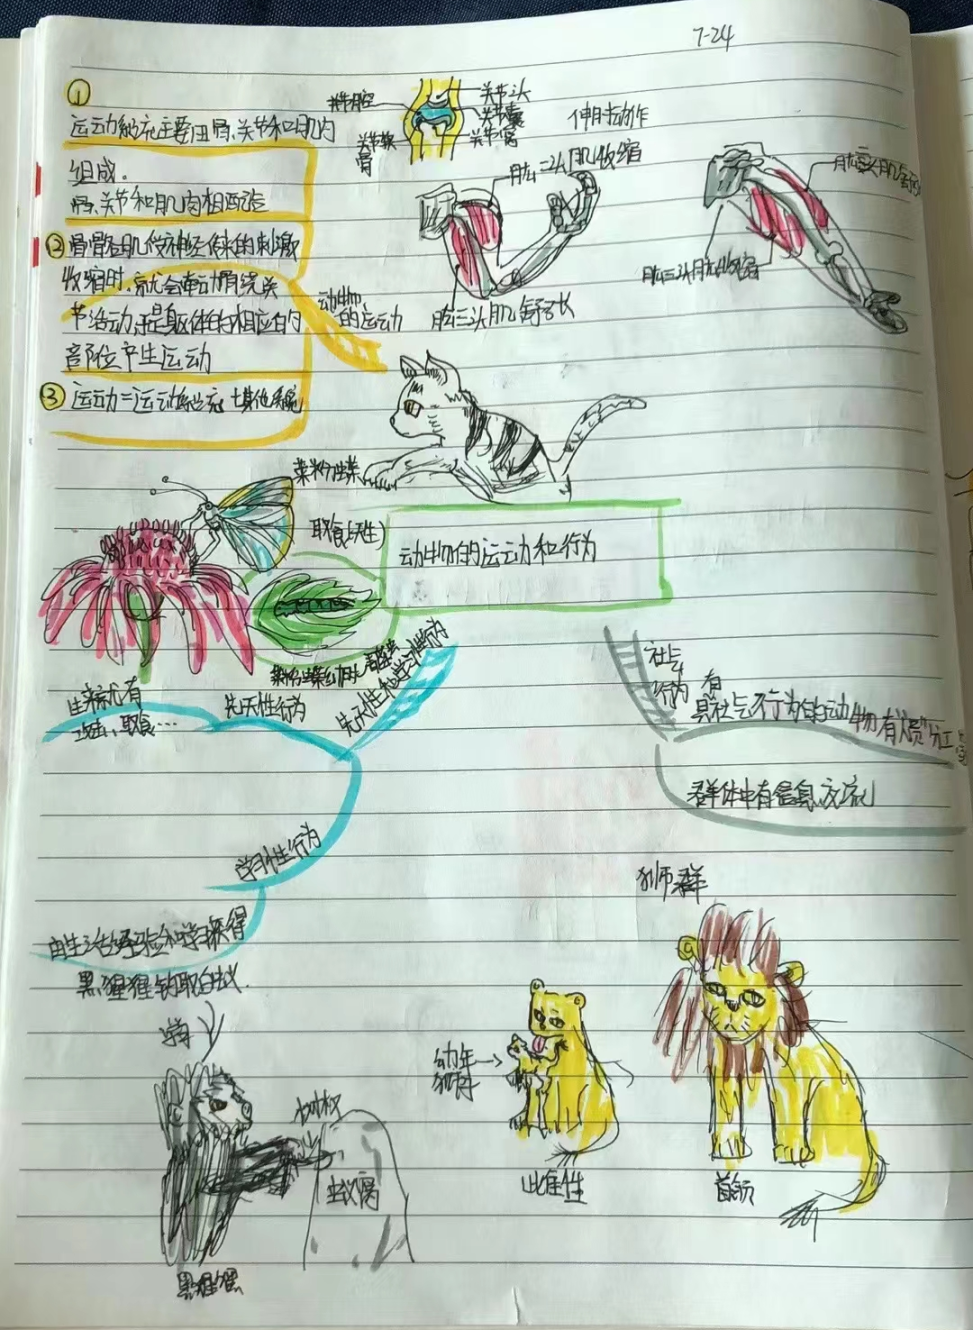 7-24
①
运动系统主要由骨、关节和肌肉
组成.
骨、关节和肌肉相配合
②骨骼肌受神经传来的刺激
收缩时,就会牵动骨绕关
节活动,于是躯体的相应的
部位产生运动
③运动=运动系统+其他系统
关节腔
关节软
骨
关节头
关节囊
关节窝
伸肘动作
肱二头肌收缩
肱三头肌舒张
肱二头肌舒
肱三头肌收缩
动物
的运动
菜粉蝶
取食(天性)
动物的运动和行为
先天性行为
先天性和学习性行为
生来就有
取食…
学习性行为
由生活经验和学习获得
黑猩猩钓取白蚁.
树杈
蚁窝
黑猩猩
社会
行为
具有社会行为的动物有"员"分工
群体中有信息交流
狮群
幼年
狮子
雌性
首领